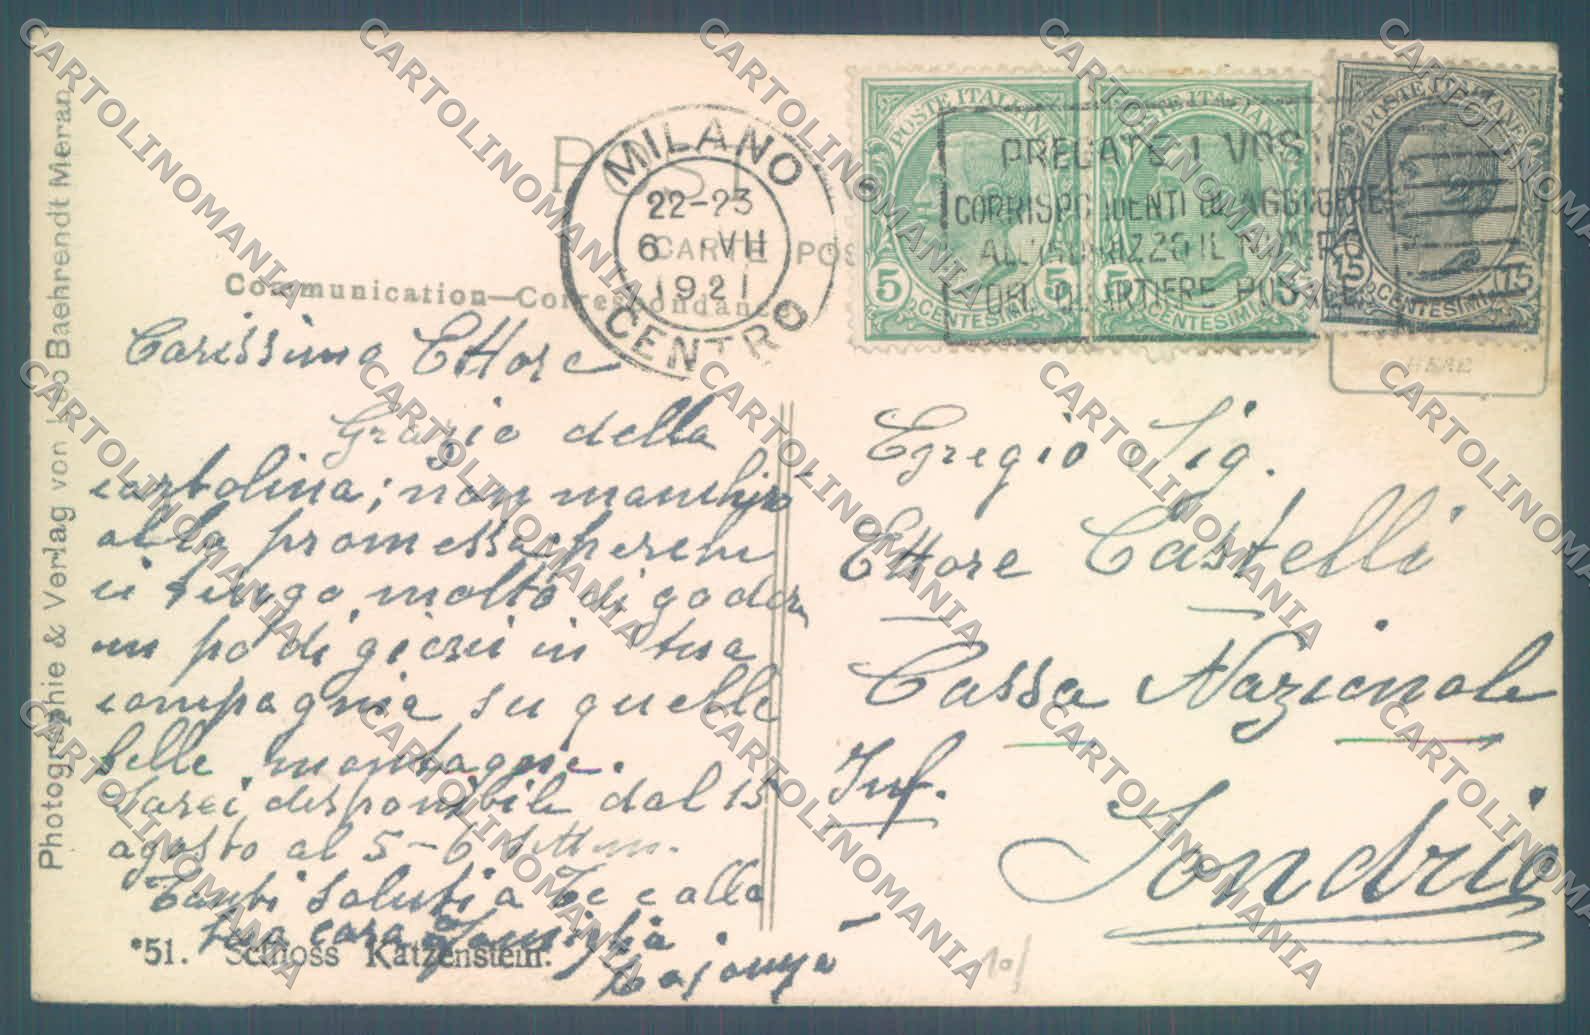 Photographie & Verlag von Leo Baehrendt Meran
POST
CARTE POS
Communication—Correspondance
MILANO
22-23
6 VII
1921
CENTRO
POSTE ITALIANE
5 5
CENTESIMI
POSTE ITALIANE
5 5
CENTESIMI
POSTE ITALIANE
15 15
CENTESIMI
PREGATE I VOSTRI
CORRISPONDENTI DI AGGIUNGERE
ALL'INDIRIZZO IL NUMERO
DEL QUARTIERE POSTALE
HERE
Carissimo Ettore
Grazie della
cartolina; non mancherò
alla promessa perchè
ci tengo molto di goder
un po' di giorni in tua
compagnia su quelle
belle montagne.
Sarei disponibile dal 15
agosto al 5-6 settem.
Tanti saluti a Te e alla
tua cara famiglia.
*51. Schloss Katzenstein.
Egregio Sig.
Ettore Castelli
Cassa Nazionale
Inf.
Sondrio
10/
CARTOLINOMANIA